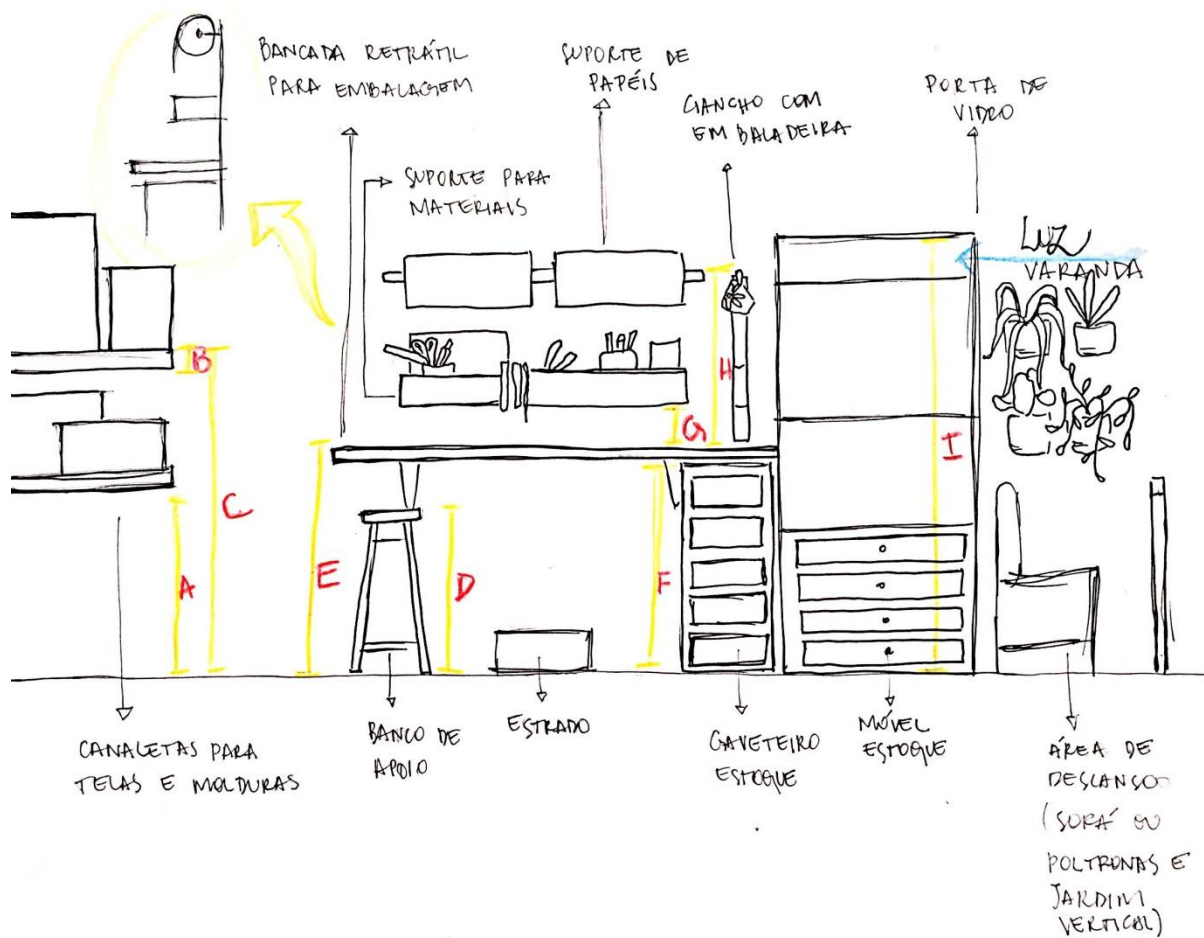 BANCADA RETRÁTIL
PARA EMBALAGEM
SUPORTE DE
PAPÉIS
GANCHO COM
EMBALADEIRA
PORTA DE
VIDRO
SUPORTE PARA
MATERIAIS
LUZ
VARANDA
B
H
G
I
C
A
E
D
F
CANALETAS PARA
TELAS E MOLDURAS
BANCO DE
APOIO
ESTRADO
GAVETEIRO
ESTOQUE
MÓVEL
ESTOQUE
ÁREA DE
DESCANSO
(SOFÁ OU
POLTRONAS E
JARDIM
VERTICAL)